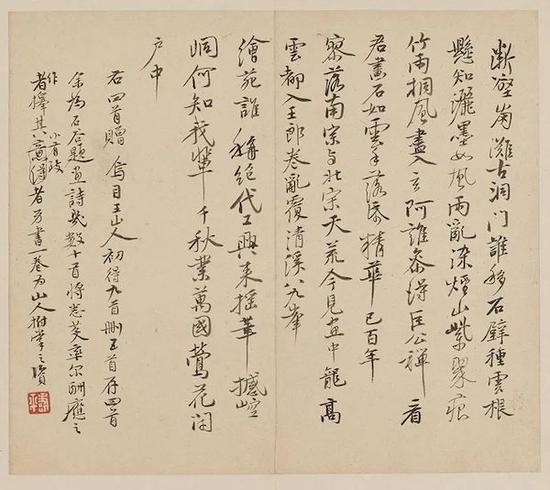 断壑崩灘古洞門誰移石壁種雲根
懸知灑墨如風雨亂染煙山紫翠痕
竹雨桐風盡入玄阿誰參得巨公禪看
君畫石如雲手落紙精華已百年
寥落南宋與北宋天荒今見畫中龍高
雲都入王郎卷亂覆清溪八九峯
繪苑誰稱絕代工興來揺筆撼崆
峒何知我輩千秋業萬國鶯花
户中
右四首贈烏目王山人初得九首刪五首存四首
余為石谷題畫詩幾數十首將悉焚率尔酬應之
作者擇其小有致者另書一卷為山人